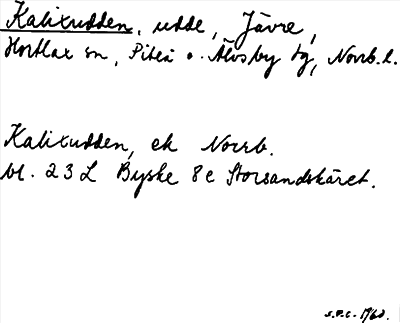 Kalixudden, udde, Jävre,
Hortlax sn, Piteå o. Älvsby tg, Norrb. l.
Kalixudden, ek Norrb.
bl. 23 L Byske 8 e Storsandskäret.
1960.